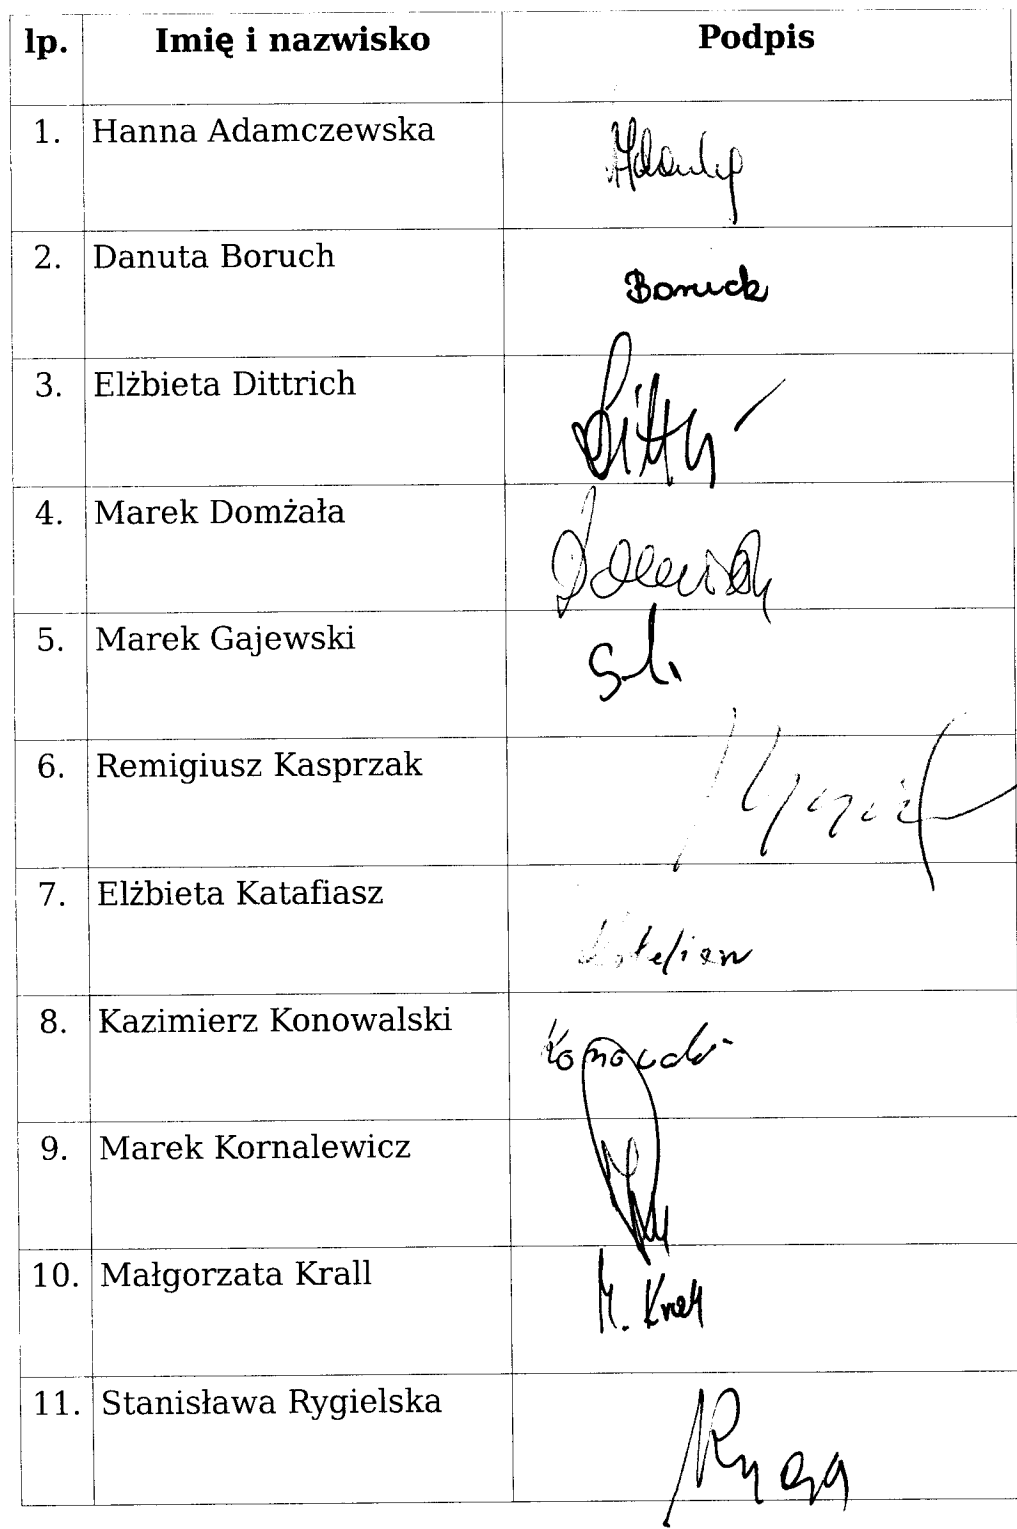 lp. Imię i nazwisko Podpis
1. Hanna Adamczewska
2. Danuta Boruch Boruch
3. Elżbieta Dittrich
4. Marek Domżała
5. Marek Gajewski
6. Remigiusz Kasprzak
7. Elżbieta Katafiasz
8. Kazimierz Konowalski
9. Marek Kornalewicz
10. Małgorzata Krall M. Krall
11. Stanisława Rygielska